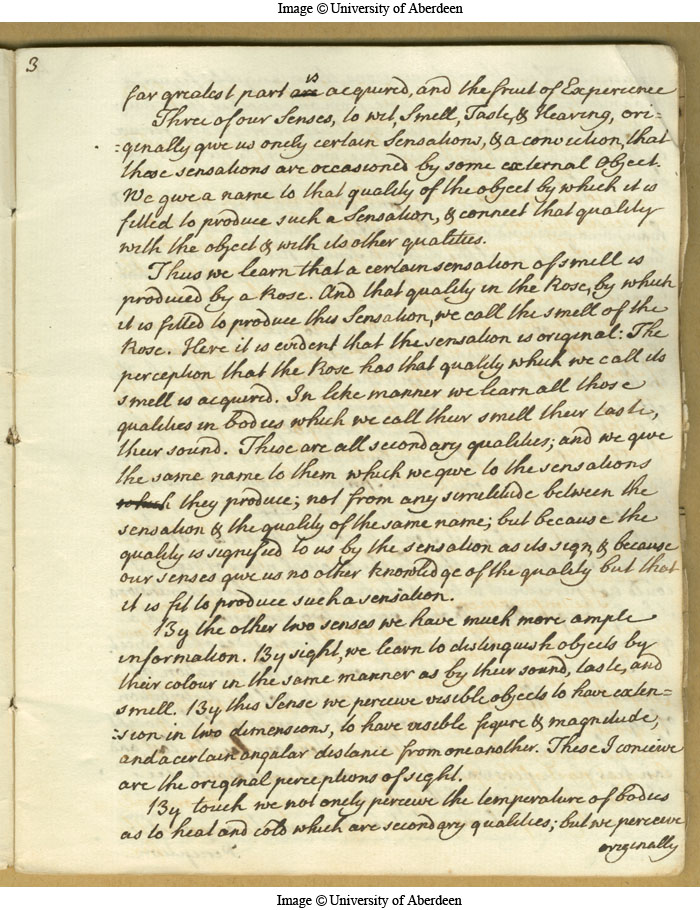 Image © University of Aberdeen
3
far greatest part are is acquired, and the fruit of Experience
Three of our Senses, to wit, Smell, Taste, & Hearing, ori=
=ginally give us onely certain Sensations, & a conviction, that
these sensations are occasioned by some external Object.
We give a name to that quality of the object by which it is
fitted to produce such a Sensation, & connect that quality
with the object & with its other qualities.
Thus we learn that a certain sensation of smell is
produced by a Rose. And that quality in the Rose, by which
it is fitted to produce this Sensation, we call the smell of the
Rose. Here it is evident that the sensation is original: The
perception that the Rose has that quality which we call its
smell is acquired. In like manner we learn all those
qualities in bodies which we call their smell their taste,
their sound. These are all secondary qualities; and we give
the same name to them which we give to the sensations
which they produce; not from any similitude between the
sensation & the quality of the same name; but because the
quality is signified to us by the sensation as its sign, & because
our senses give us no other knowledge of the quality but that
it is fit to produce such a sensation.
By the other two senses we have much more ample
information. By sight, we learn to distinguish objects by
their colour in the same manner as by their sound, taste, and
smell. By this Sense we perceive visible objects to have exten=
=sion in two dimensions, to have visible figure & magnitude,
and a certain angular distance from one another. These I conceive
are the original perceptions of sight.
By touch we not onely perceive the temperature of bodies
as to heat and cold which are secondary qualities; but we perceive
originally
Image © University of Aberdeen